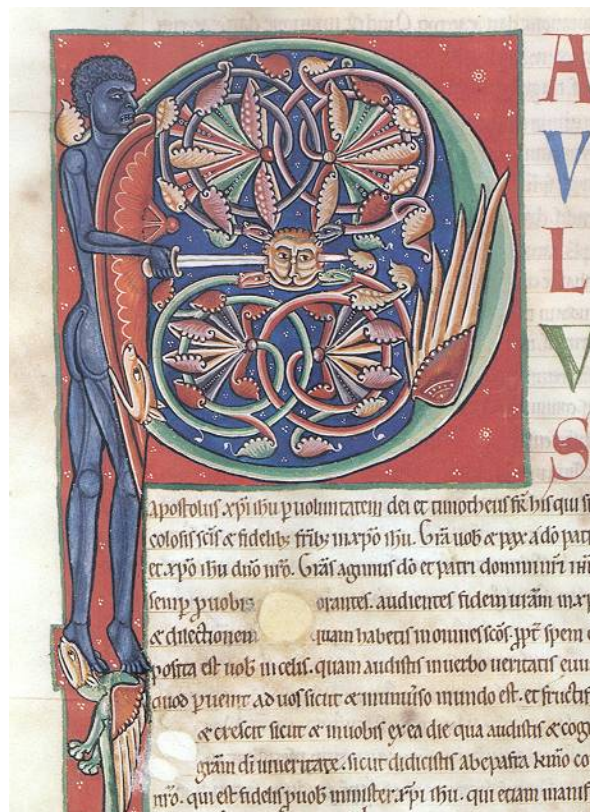 P
A
V
L
V
S
apostolus xpi ihu p uoluntatem dei et timotheus fr his qui s
colosis scis & fidelib; frib; in xpo ihu. Gra uob & pax a do patr
et xpo ihu dno nro. Gras agimus do et patri domini nri ihu
semp p uobis orantes. audientes fidem uram in xp
& dilectionem quam habetis in omnes scos. ppt spem
posita est uob in celis. quam audistis in uerbo ueritatis euu
quod puenit ad uos sicut & in uniuso mundo est. et fructif
& crescit sicut & in uobis ex ea die qua audistis & cog
gram di in ueritate. sicut didicistis ab epafra kmo co
nro. qui est fidelis p uob minister. xpi ihu. qui etiam manif